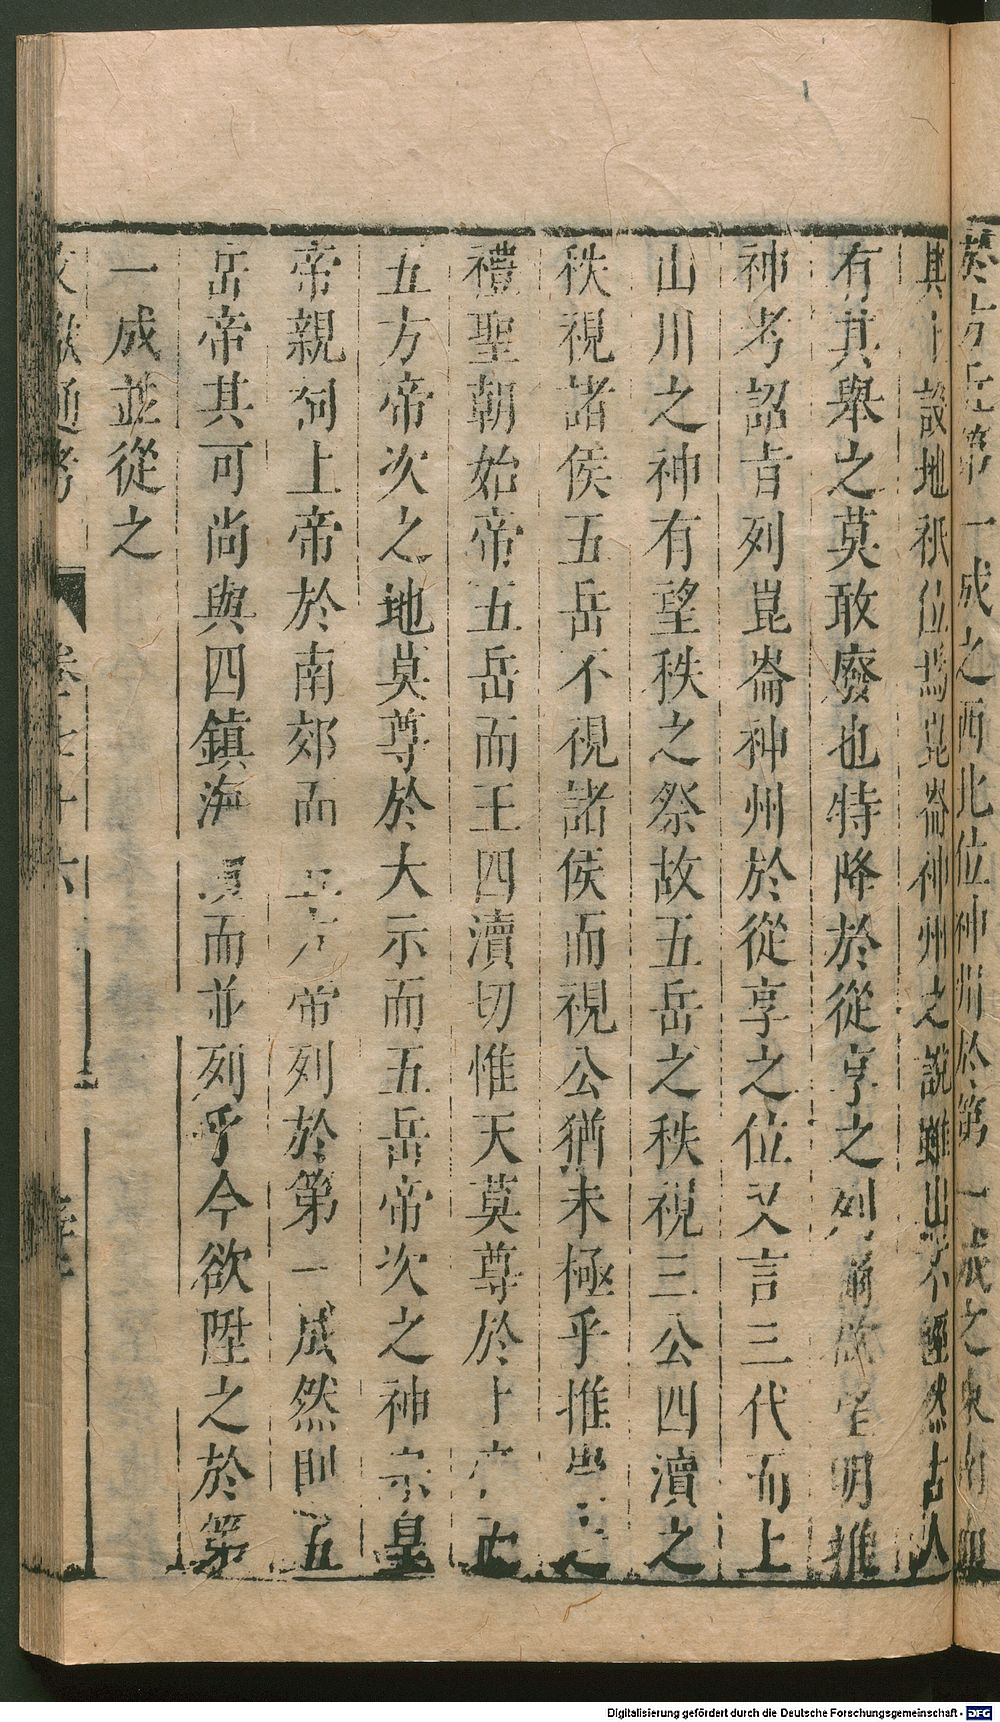 於方丘第一成之西北位神州於第一成之東南
其上設地祇位焉崑崙神州之說雖出不經然古人
有其舉之莫敢廢也特降於從享之列明推
神考詔旨列崑崙神州於從享之位又言三代而上
山川之神有望秩之祭故五岳之秩視三公四瀆之
秩視諸侯五岳不視諸侯而視公猶未極乎推崇之
禮聖朝始帝五岳而王四瀆切惟天莫尊於上帝而
五方帝次之地莫尊於大示而五岳帝次之神宗皇
帝親祠上帝於南郊而五方帝列於第一成然則五
岳帝其可尚與四鎮海瀆而並列乎今欲陞之於第
一成並從之
文獻通考 卷七十六
Digitalisierung gefördert durch die Deutsche Forschungsgemeinschaft - DFG